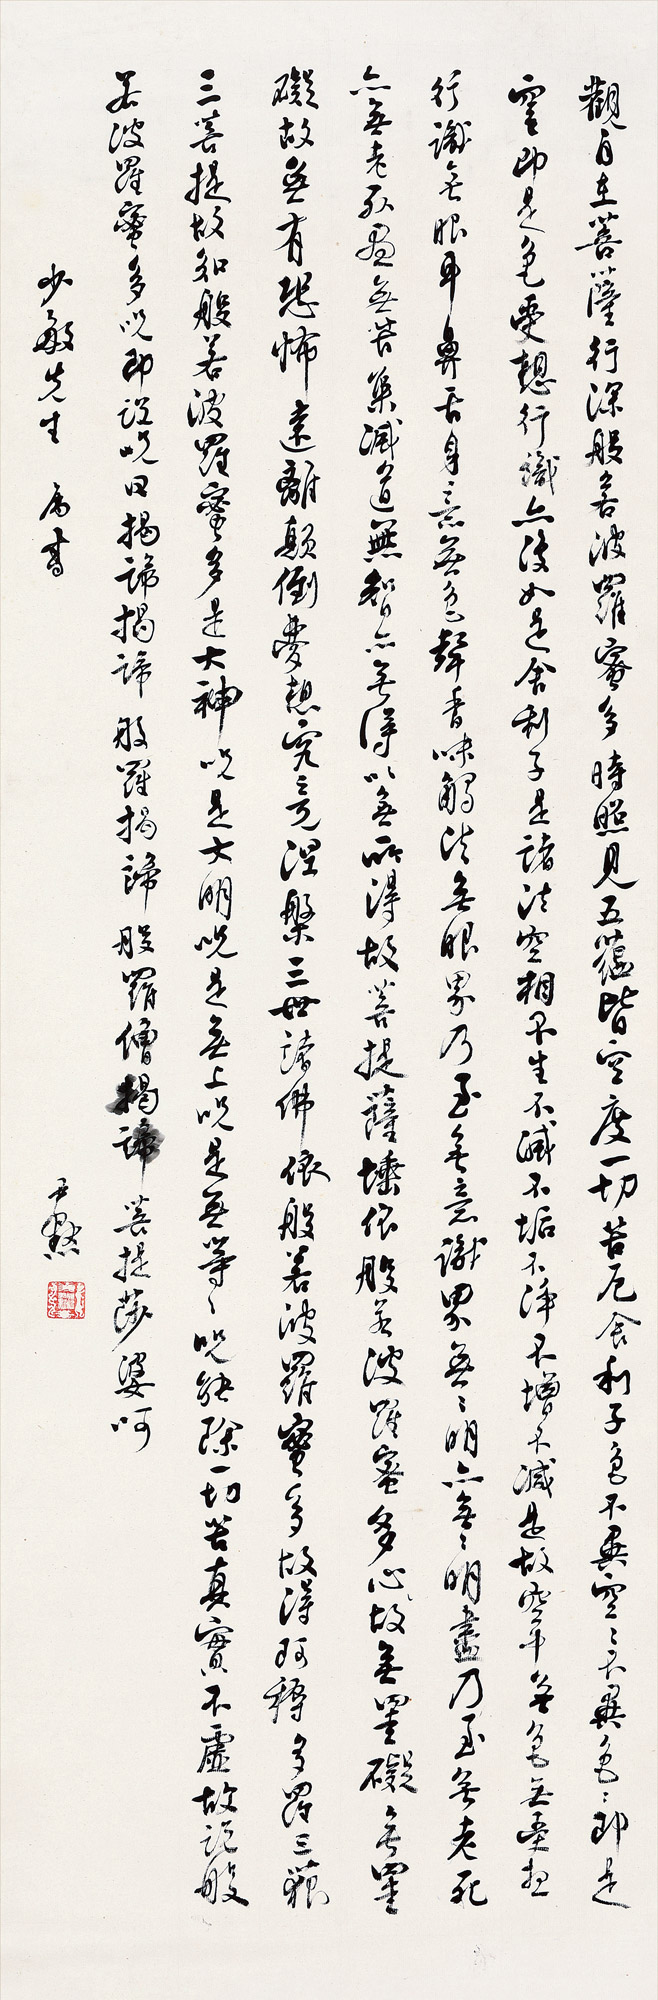 觀自在菩薩行深般若波羅蜜多時照見五蘊皆空度一切苦厄舍利子色不異空〻不異色〻即是
空〻即是色受想行識亦復如是舍利子是諸法空相不生不滅不垢不淨不增不減是故空中無色無受想
行識無眼耳鼻舌身意無色聲香味觸法無眼界乃至無意識界無〻明亦無〻明盡乃至無老死
亦無老死盡無苦集滅道無智亦無得以無所得故菩提薩埵依般若波羅蜜多心故無罣礙無罣
礙故無有恐怖遠離顛倒夢想究竟涅槃三世諸佛依般若波羅蜜多故得阿耨多羅三藐
三菩提故知般若波羅蜜多是大神咒是大明咒是無上咒是無等〻咒能除一切苦真實不虛故說般
若波羅蜜多咒即說咒曰揭諦揭諦般羅揭諦般羅僧揭諦菩提莎婆呵
少敏先生 屬書
尹默